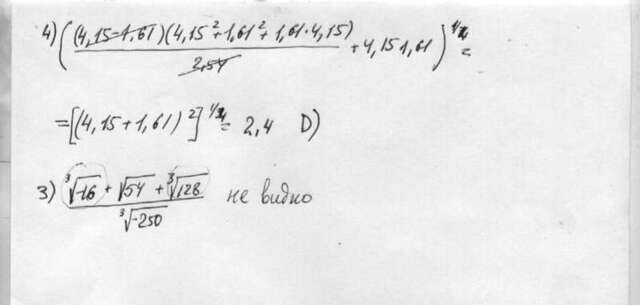 4) ((4,15-1,61)(4,15²+1,61²+1,61·4,15) / 2,54 + 4,15 1,61)^1/4 =
= [(4,15+1,61)²]^1/4 = 2,4 D)
3) (∛-16 + √54 + ∛128) / ∛-250 не видно